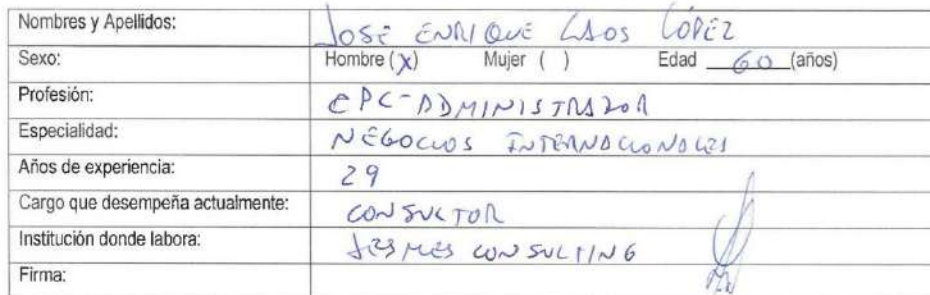 Nombres y Apellidos: JOSÉ ENRIQUE LAOS LÓPEZ
Sexo: Hombre (X) Mujer ( ) Edad 60 (años)
Profesión: CPC-ADMINISTRADOR
Especialidad: NEGOCIOS INTERNACIONALES
Años de experiencia: 29
Cargo que desempeña actualmente: CONSULTOR
Institución donde labora: CONSULTING
Firma: